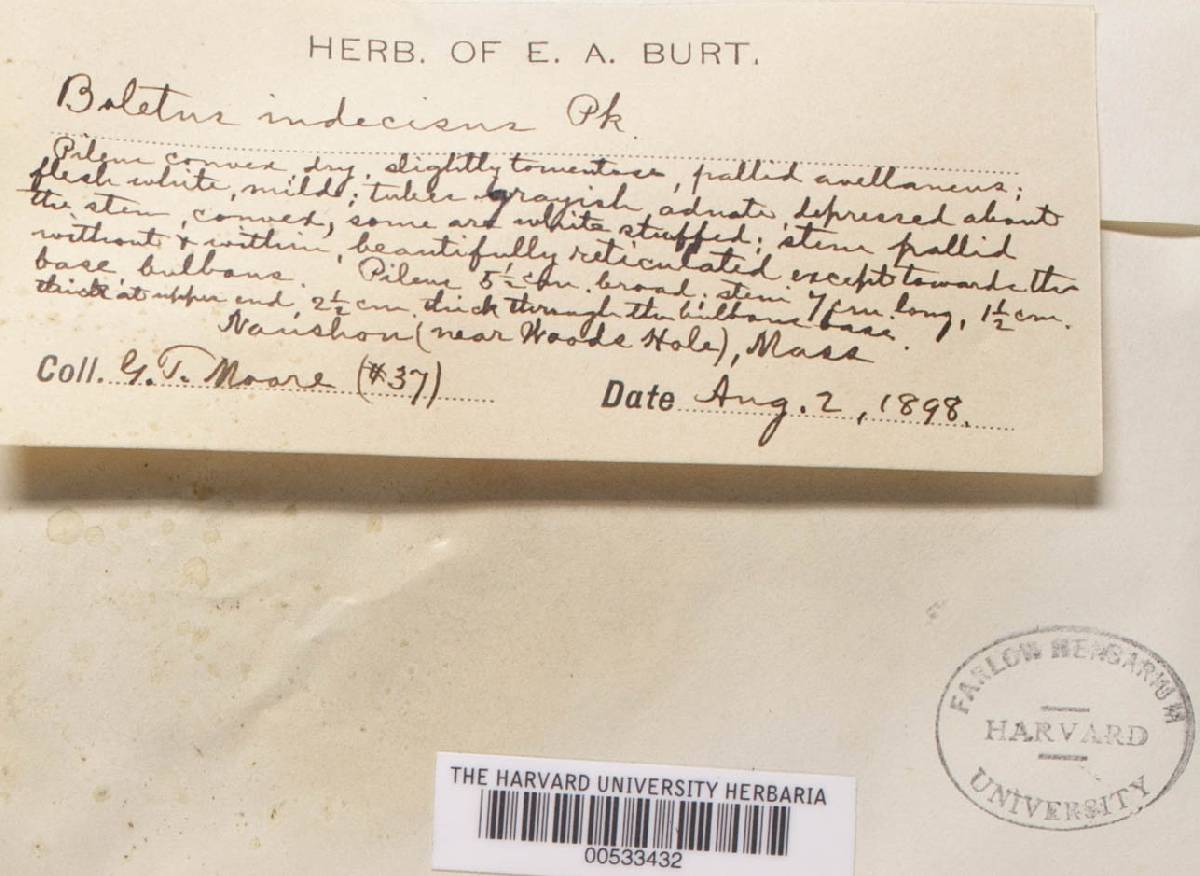 HERB. OF E. A. BURT.
Boletus indecisus Pk.
Pileus convex, dry, slightly tomentose, pallid avellaneus;
flesh white, mild; tubes grayish, adnate, depressed about
the stem, convex, some are white stuffed; stem pallid
without & within, beautifully reticulated except towards the
base, bulbous. Pileus 5½ cm. broad; stem 7 cm. long, 1½ cm.
thick at upper end, 2½ cm. thick through the bulbous base.
Naushon (near Woods Hole), Mass
Coll. G. T. Moore (#37)
Date Aug. 2, 1898.
FARLOW HERBARIUM
HARVARD
UNIVERSITY
THE HARVARD UNIVERSITY HERBARIA
00533432